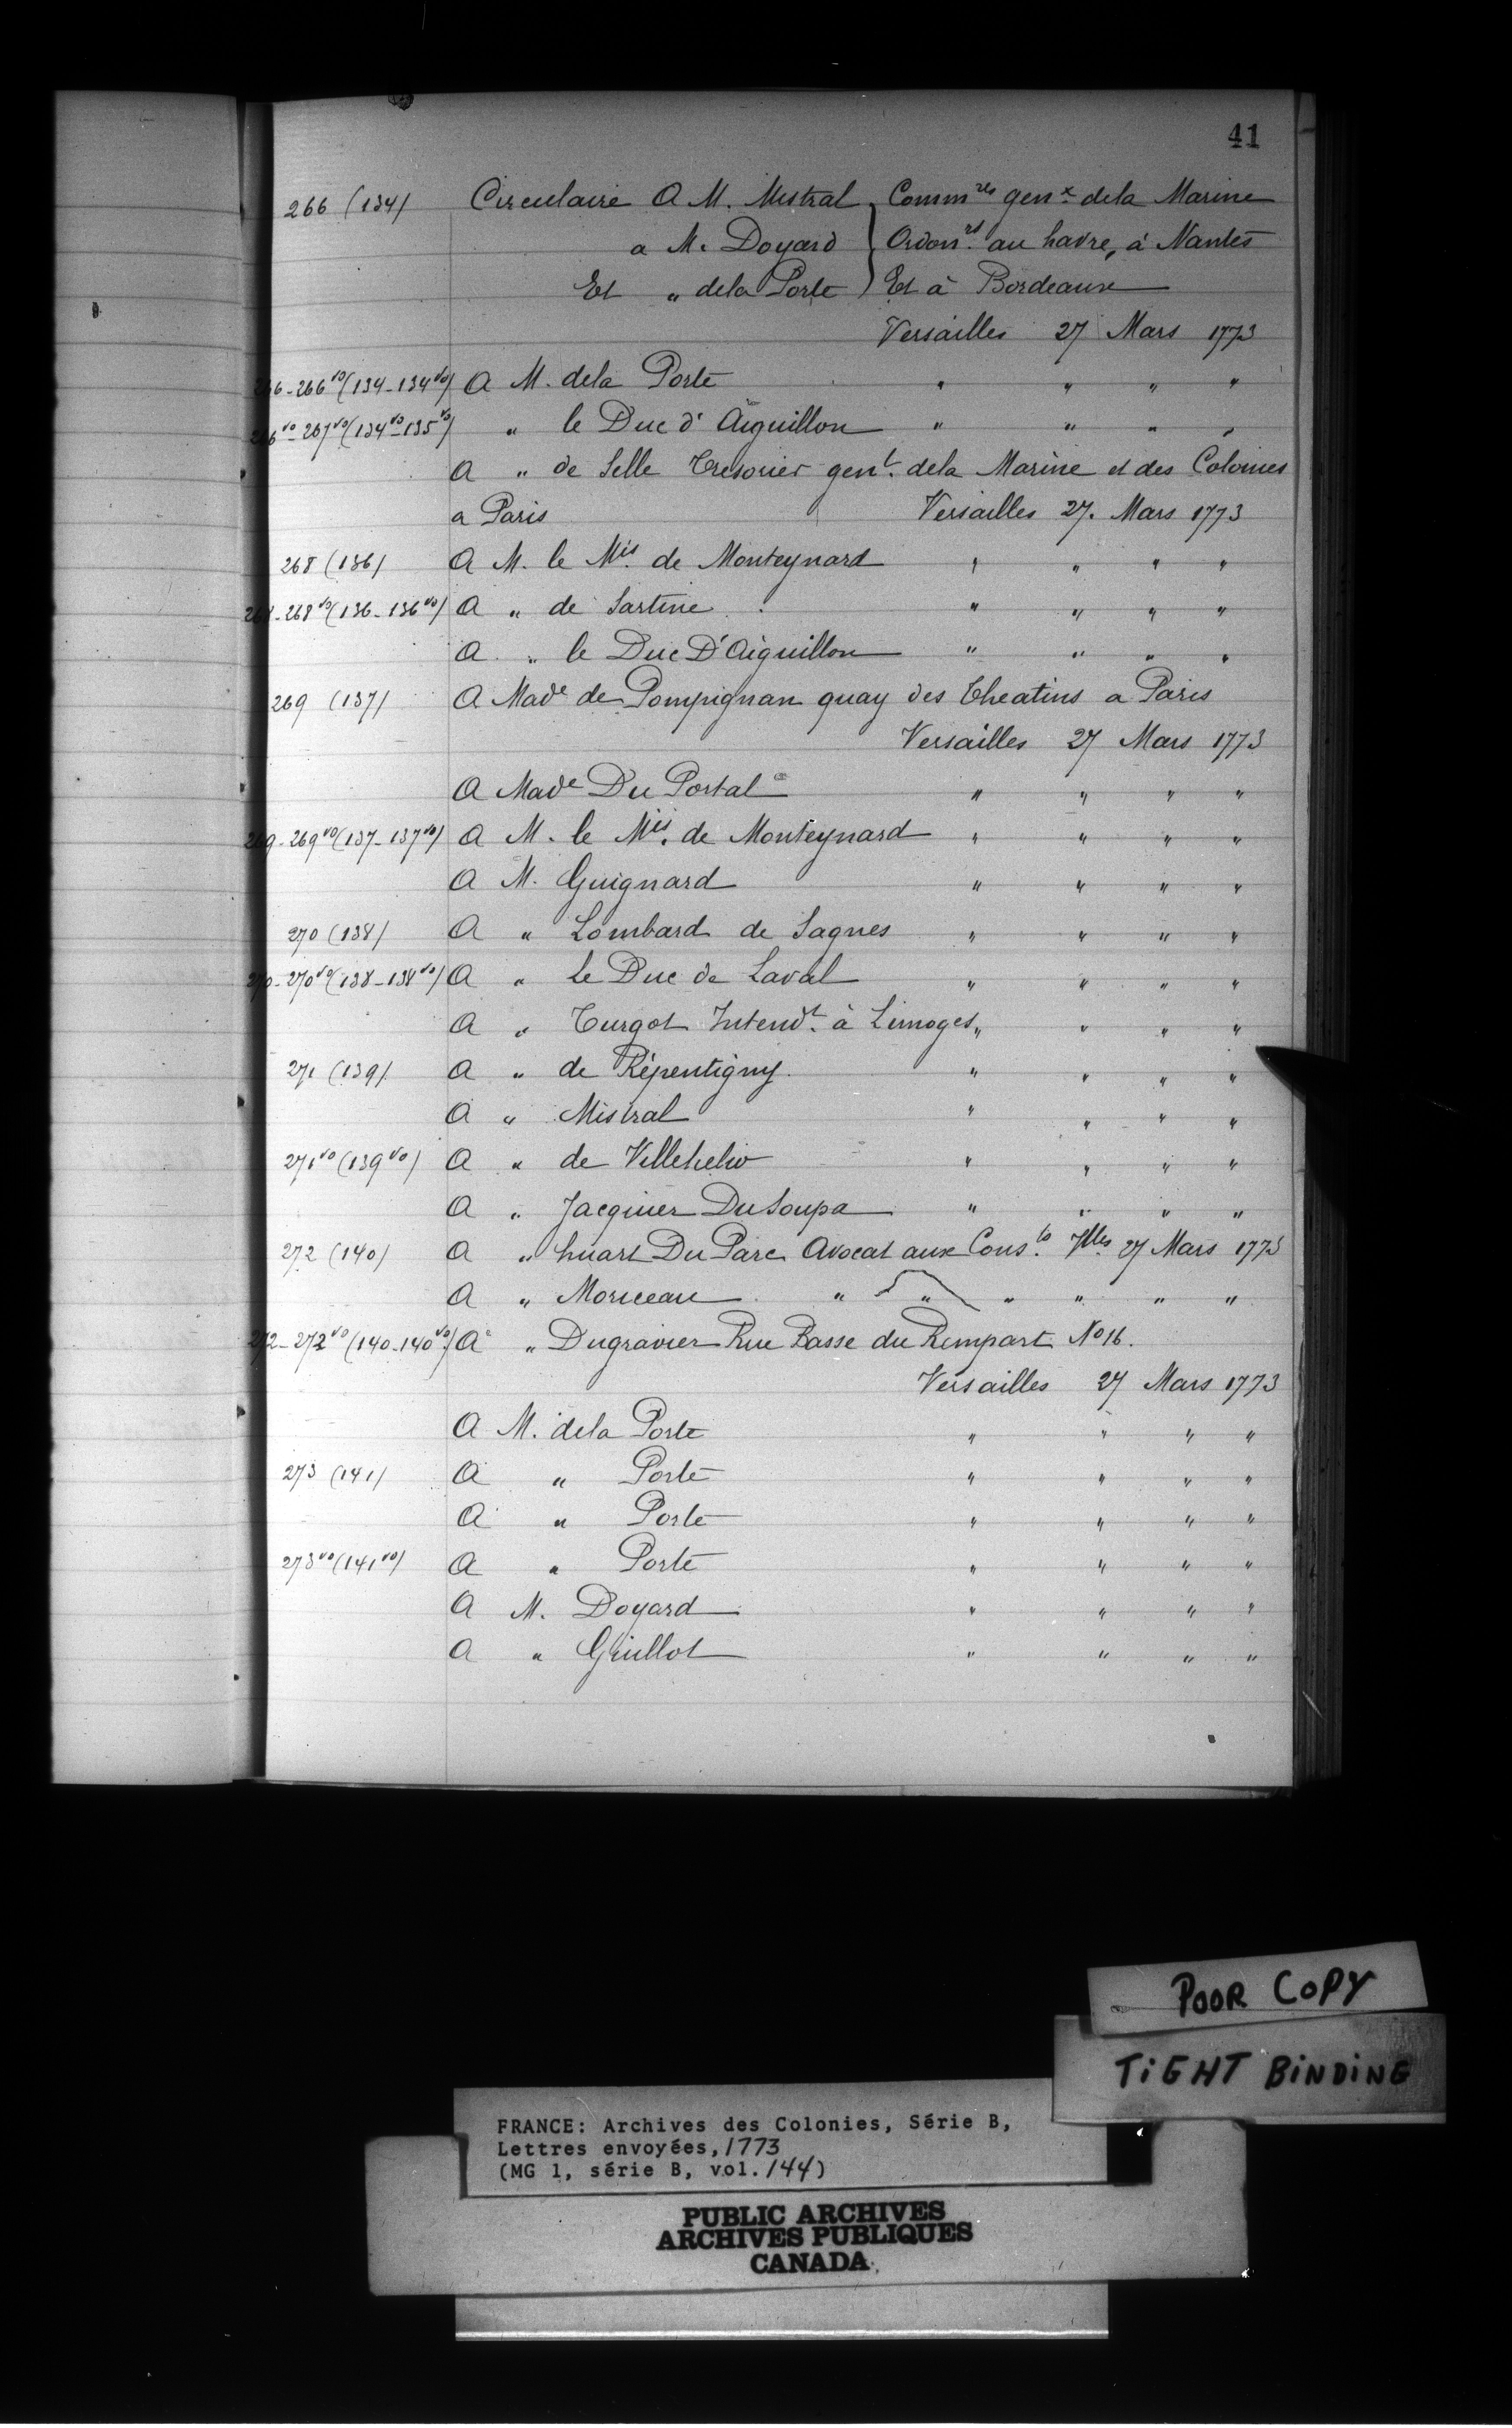 41
266 (134) Circulaire A M. Mistral } Comm.res gen.x dela Marine
a M. Doyard } Ordon.rs au havre, à Nantes
Et " dela Porte } Et à Bordeaux
Versailles 27 Mars 1773
266-266vo (134-134vo) A M. dela Porte " " " "
266vo-267vo (134vo-135vo) " le Duc d'Aiguillon " " " "
A " de Selle Tresorier gen.l dela Marine et des Colonies
a Paris Versailles 27. Mars 1773
268 (136) A M. le Mis. de Monteynard " " " "
268-268vo (136-136vo) A " de Sartine " " " "
A " le Duc D'Aiguillon " " " "
269 (137) A Made de Pompignan quay des Theatins a Paris
Versailles 27 Mars 1773
A Made Du Portal " " " "
269-269vo (137-137vo) A M. le Mis. de Monteynard " " " "
A M. Guignard " " " "
270 (138) A " Lombard de Sagnes " " " "
270-270vo (138-138vo) A " Le Duc de Laval " " " "
A " Turgot Intend.t à Limoges " " " "
271 (139) A " de Répentigny " " " "
A " Mistral " " " "
271vo (139vo) A " de Villehelio " " " "
A " Jacquier DuSoupa " " " "
272 (140) A " huart Du Parc Avocat aux Cons.ls Vlles 27 Mars 1773
A " Moriceau " " " " " "
272-272vo (140-140vo) A " Dugravier Rue Basse du Rempart No 16.
Versailles 27 Mars 1773
A M. dela Porte " " " "
273 (141) A " Porte " " " "
A " Porte " " " "
273vo (141vo) A " Porte " " " "
A M. Doyard " " " "
A " Guillot " " " "
POOR COPY
TiGHT BiNDiNG
FRANCE: Archives des Colonies, Série B,
Lettres envoyées, 1773
(MG 1, série B, vol. 144)
PUBLIC ARCHIVES
ARCHIVES PUBLIQUES
CANADA